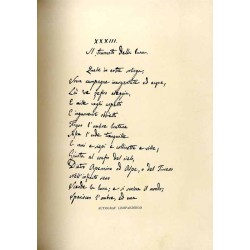 XXXIII.
Il tramonto della Luna.
Quale in notte solinga,
Sovra campagne inargentate ed acque,
Là 've zefiro aleggia,
E mille vaghi aspetti
E ingannevoli obbietti
Fingon l'ombre lontane
Infra l'onde tranquille
E rami e siepi e collinette e ville;
Giunta al confin del cielo,
Dietro Apennino od Alpe, o del Tirreno
Nell'infinito seno
Scende la luna; e si scolora il mondo;
Spariscon l'ombre, ed una
AUTOGRAFO LEOPARDIANO